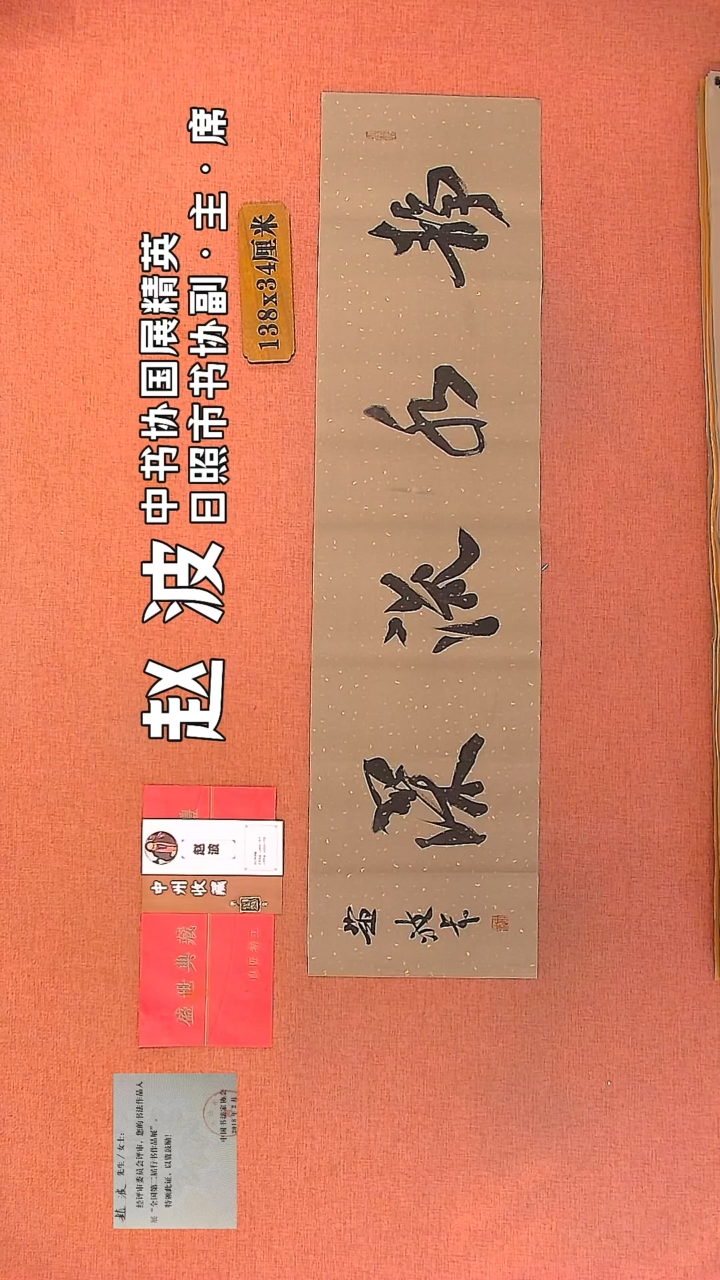 赵波
中书协国展精英
日照市书协副·主·席
138x34厘米
静水流深
赵波书
赵波
中州收藏
盛世典藏
赵波 先生/女士:
经评审委员会评审,您的书法作品入
展“全国第二届行书作品展”。
特颁此证,以资鼓励!
中国书法家协会
2018年2月